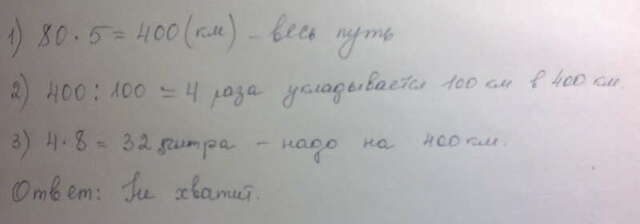 1) 80 · 5 = 400 (км) – весь путь
2) 400 : 100 = 4 раза укладывается 100 км в 400 км.
3) 4 · 8 = 32 литра – надо на 400 км.
Ответ: Не хватит.